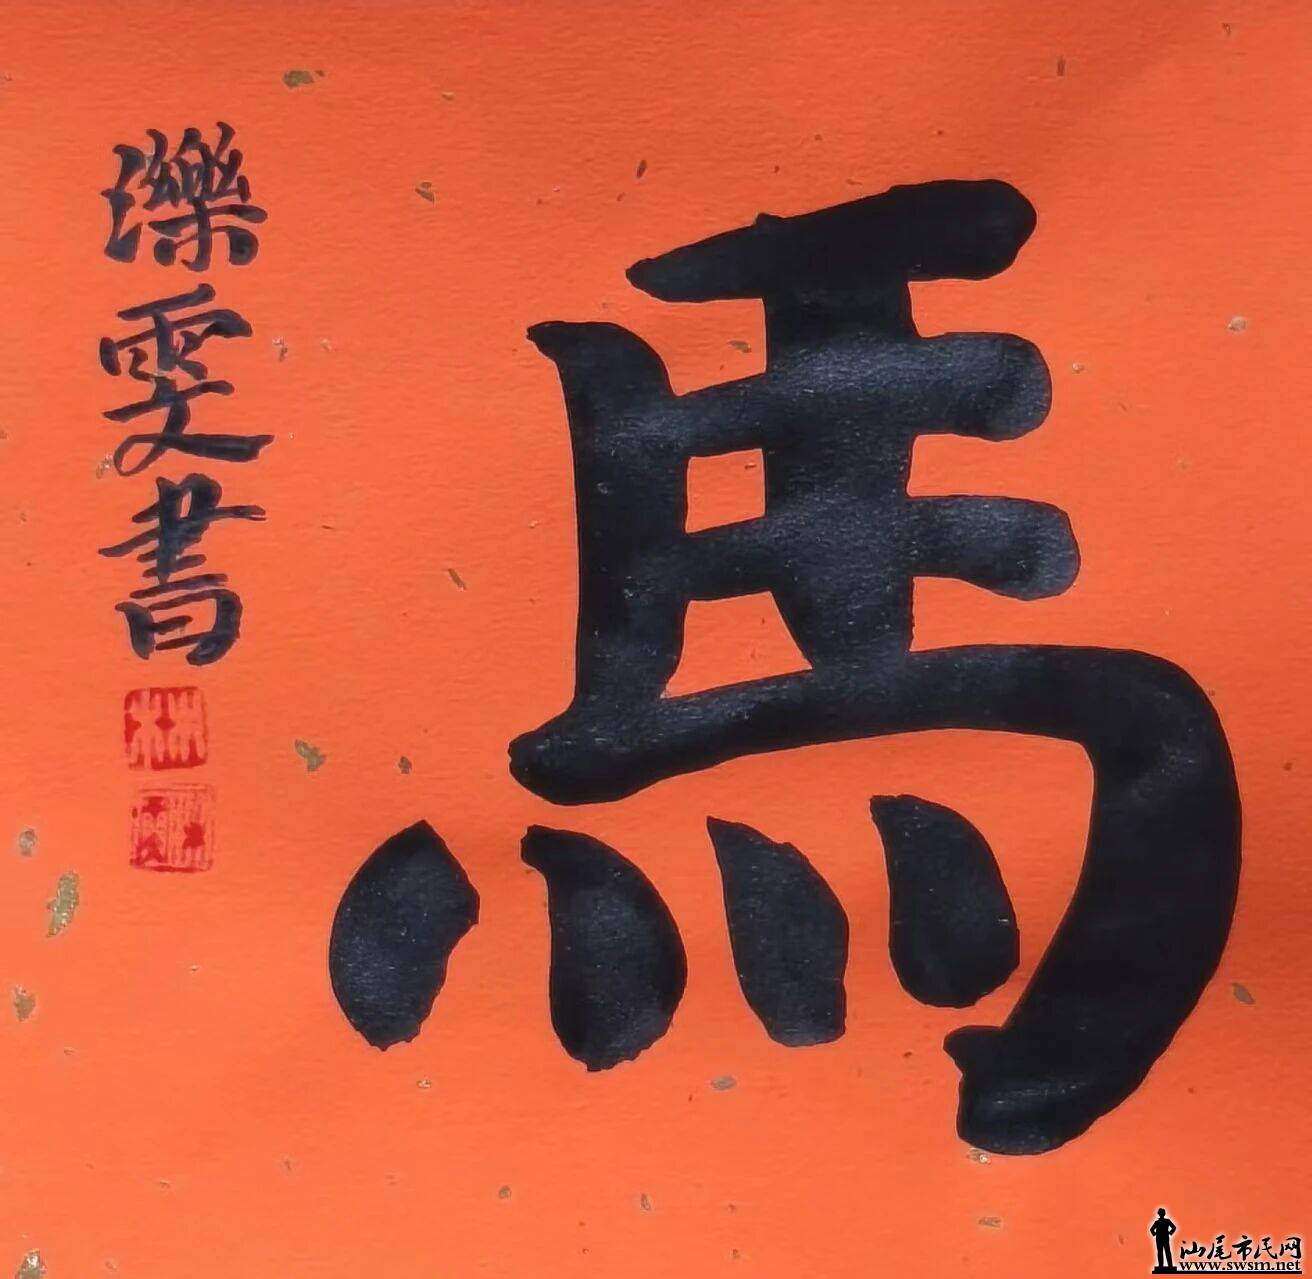 馬
瓅雯書
林
汕尾市民网
www.swsm.net